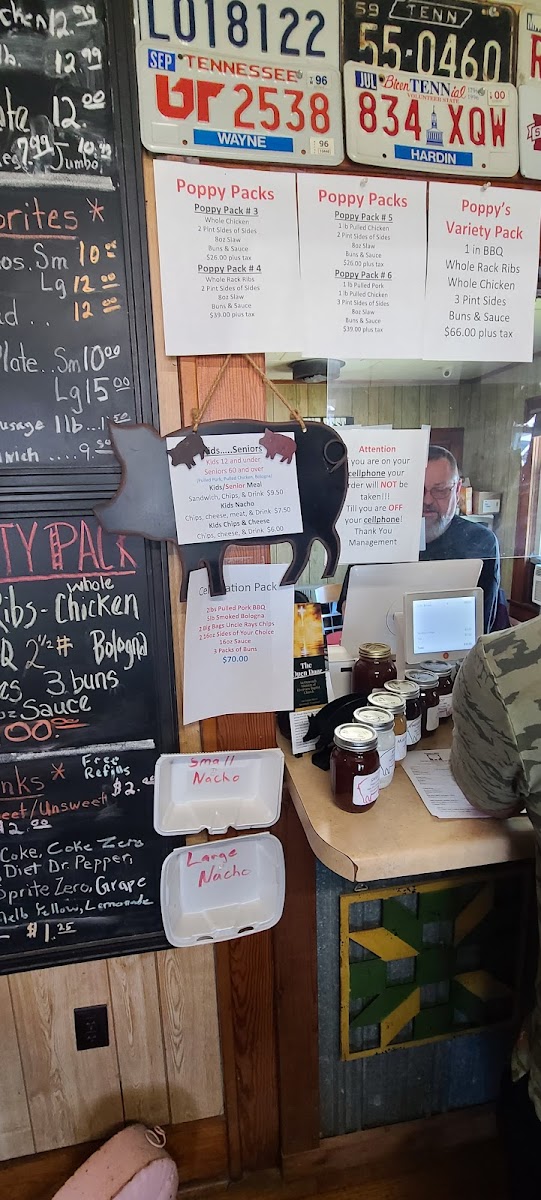 12.99
lb. 12.99
12.00
7.99 10.99
Jumbo
orites *
os. Sm 10.00
Lg 12.00
12.00
Plate.. Sm 10.00
Lg 15.00
usage 1lb..
wich ....9.50
TY PACK
whole
Ribs - Chicken
Q 2 1/2 # Bologna
3 buns
Sauce
00.00
nks * Free
Refills
eet/Unsweet $2.00
$2.00
Coke, Coke Zero
Diet Dr. Pepper,
Sprite Zero, Grape
Mello Yellow, Lemonade
$1.25
L018122
SEP TENNESSEE 96
UT 2538
WAYNE
96
59 TENN
55-0460
JUL BicenTENNial 1796 1996 00
VOLUNTEER STATE
834 XQW
HARDIN
Poppy Packs
Poppy Pack # 3
Whole Chicken
2 Pint Sides of Sides
8oz Slaw
Buns & Sauce
$26.00 plus tax
Poppy Pack # 4
Whole Rack Ribs
2 Pint Sides of Sides
8oz Slaw
Buns & Sauce
$39.00 plus tax
Poppy Packs
Poppy Pack # 5
1 lb Pulled Chicken
2 Pint Sides of Sides
8oz Slaw
Buns & Sauce
$26.00 plus tax
Poppy Pack # 6
1 lb Pulled Pork
1 lb Pulled Chicken
3 Pint Sides of Sides
8oz Slaw
Buns & Sauce
$39.00 plus tax
Poppy's
Variety Pack
1 in BBQ
Whole Rack Ribs
Whole Chicken
3 Pint Sides
Buns & Sauce
$66.00 plus tax
Kids.....Seniors
Kids 12 and under
Seniors 60 and over
(Pulled Pork, Pulled Chicken, Bologna)
Kids/Senior Meal
Sandwich, Chips, & Drink $9.50
Kids Nacho
Chips, cheese, meat, & Drink $7.50
Kids Chips & Cheese
Chips, cheese, & Drink $6.00
Attention
you are on your
cellphone your
rder will NOT be
taken!!!
Till you are OFF
your cellphone!
Thank You
Management
Cel ation Pack
2lbs Pulled Pork BBQ
5lb Smoked Bologna
2 Big Bags Uncle Rays Chips
2 16oz Sides of Your Choice
16oz Sauce
3 Packs of Buns
$70.00
The
Open Door
Small
Nacho
Large
Nacho